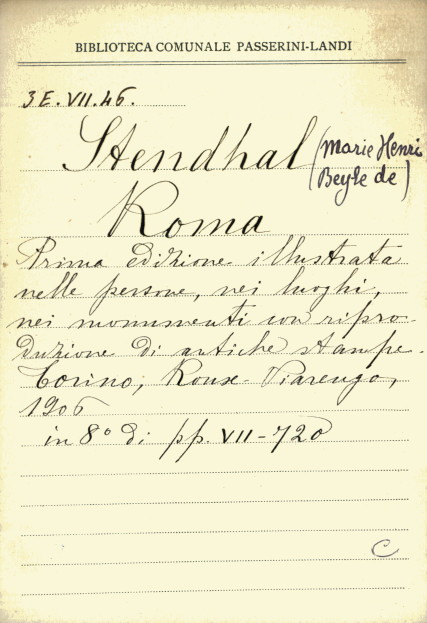 BIBLIOTECA COMUNALE PASSERINI-LANDI
3E. VII. 46.
Stendhal (Marie Henri
Beyle de)
Roma
Prima edizione illustrata
nelle persone, nei luoghi,
nei monumenti con ripro-
duzione di antiche stampe.
Torino, Roux-Viarengo,
1906
in 8° di pp. VII-720
C